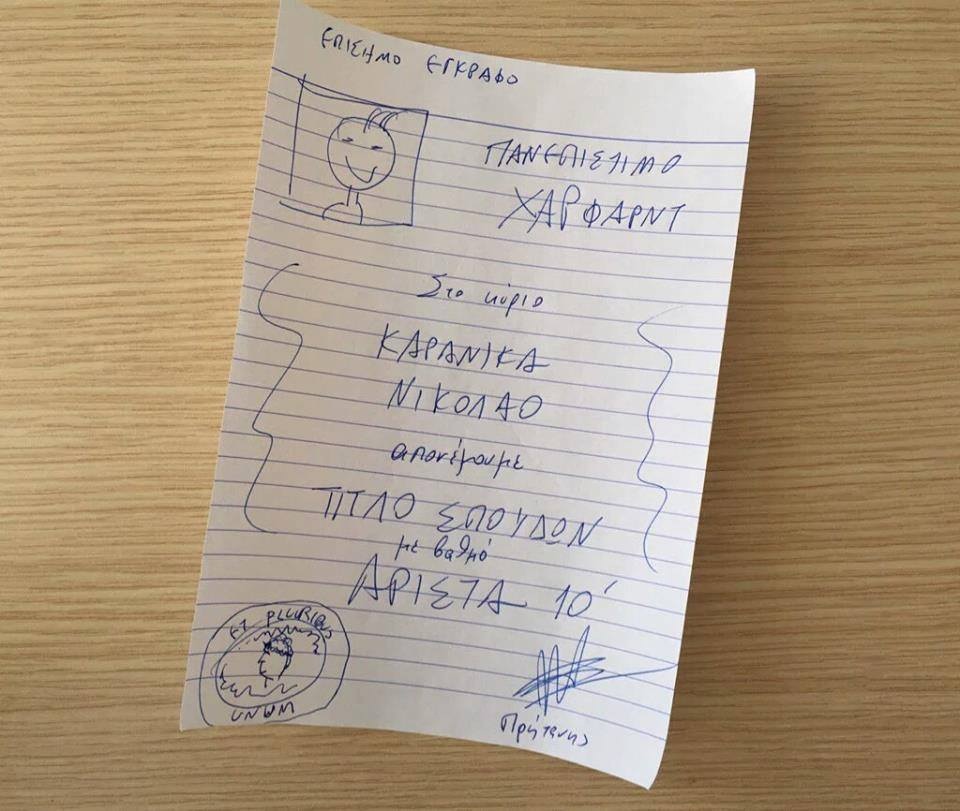 ΕΠΙΣΗΜΟ ΕΓΚΡΑΦΟ
ΠΑΝΕΠΙΣΙΜΟ
ΧΑΡΦΑΡΝΤ
Στο κύριο
ΚΑΡΑΝΙΚΑ
ΝΙΚΟΛΑΟ
απονέμουμε
ΤΙΤΛΟ ΣΠΟΥΔΩΝ
με βαθμό
ΑΡΙΣΤΑ 10΄
ET PLURIBUS
UNUM
Πρήτανης